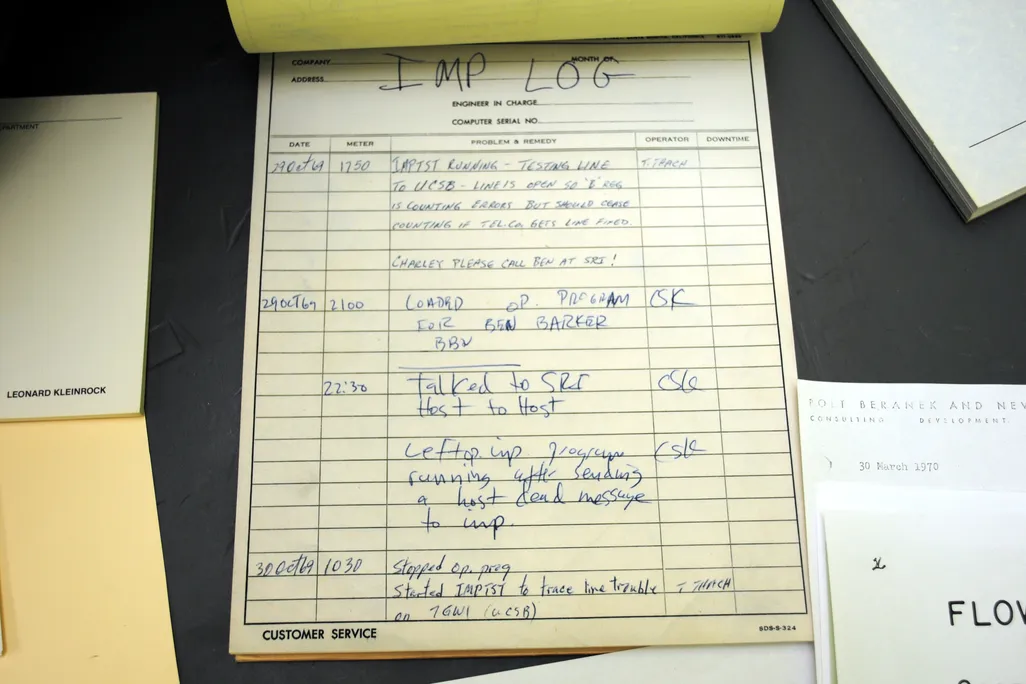 COMPANY MONTH OF
ADDRESS
IMP LOG
ENGINEER IN CHARGE
COMPUTER SERIAL NO.
DATE METER PROBLEM & REMEDY OPERATOR DOWNTIME
29 Oct 69 1750 IMPTST RUNNING - TESTING LINE T. THACH
TO UCSB - LINE IS OPEN SO 'B' REG
IS COUNTING ERRORS BUT SHOULD CEASE
COUNTING IF TEL.CO. GETS LINE FIXED.
CHARLEY PLEASE CALL BEN AT SRI!
29 OCT 69 2100 LOADED OP. PROGRAM CSK
FOR BEN BARKER
BBN
22:30 Talked to SRI CSK
Host to Host
Left op. imp. program CSK
running after sending
a host dead message
to imp.
30 Oct 69 1030 Stopped op. prog
Started IMPTST to trace line trouble T. THACH
on (UCSB)
CUSTOMER SERVICE SDS-S-324
LEONARD KLEINROCK
BOLT BERANEK AND NEW
CONSULTING DEVELOPMENT
30 March 1970
FLOW